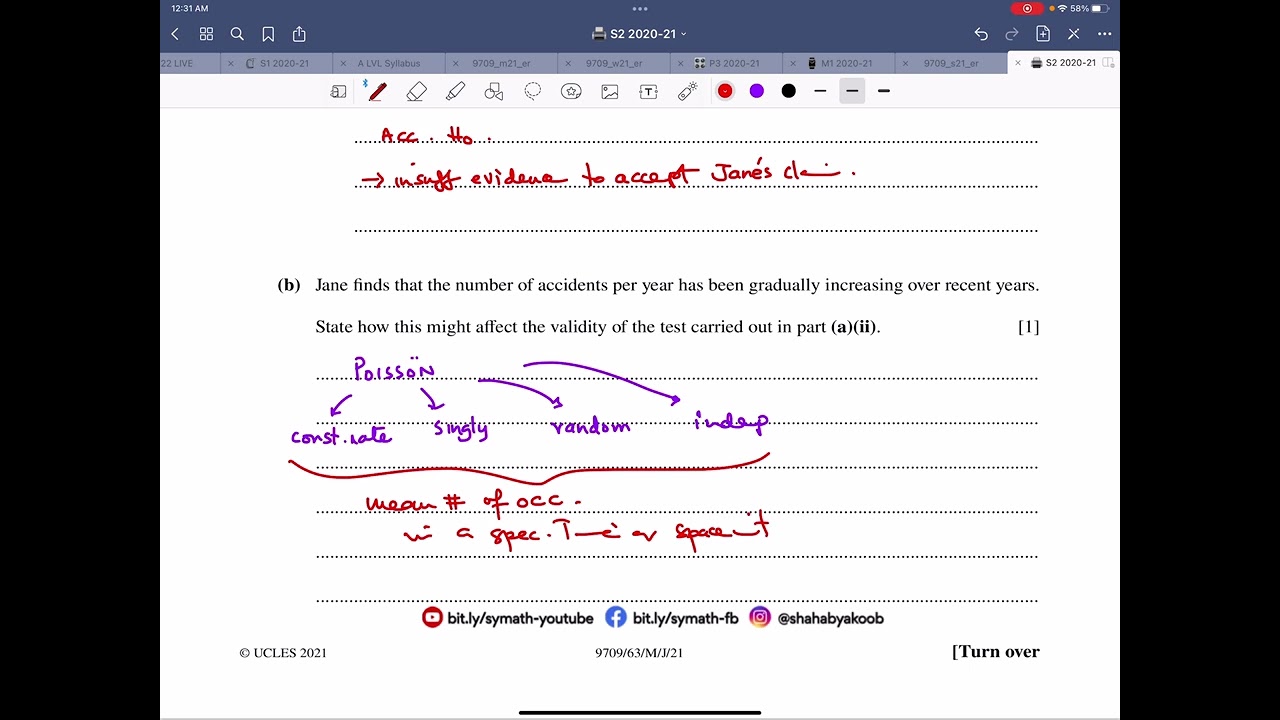 12:31 AM
58%
S2 2020-21
22 LIVE
S1 2020-21
A LVL Syllabus
9709_m21_er
9709_w21_er
P3 2020-21
M1 2020-21
9709_s21_er
S2 2020-21
Acc. Ho.
→ insuff evidence to accept Jane's
(b) Jane finds that the number of accidents per year has been gradually increasing over recent years.
State how this might affect the validity of the test carried out in part (a)(ii). [1]
Poisson
const. rate singly random indep
mean # of occ.
in a spec. or space
bit.ly/symath-youtube bit.ly/symath-fb @shahabyakoob
© UCLES 2021 9709/63/M/J/21 [Turn over